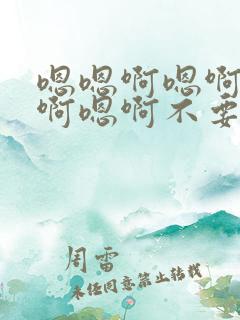 嗯嗯啊嗯啊
啊嗯啊不要
周雷
未经同意禁止转载